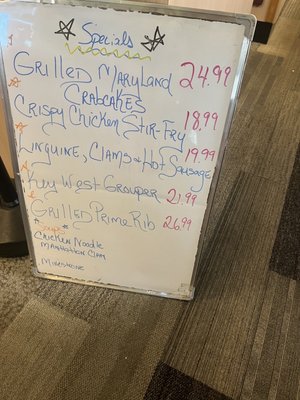 Specials
Grilled Maryland 24.99
Crabcakes
Crispy Chicken Stir-Fry 18.99
Linguine, Clams & Hot Sausage 19.99
Key West Grouper 21.99
Grilled Prime Rib 26.99
Soups
Chicken Noodle
Manhattan Clam
Minestrone